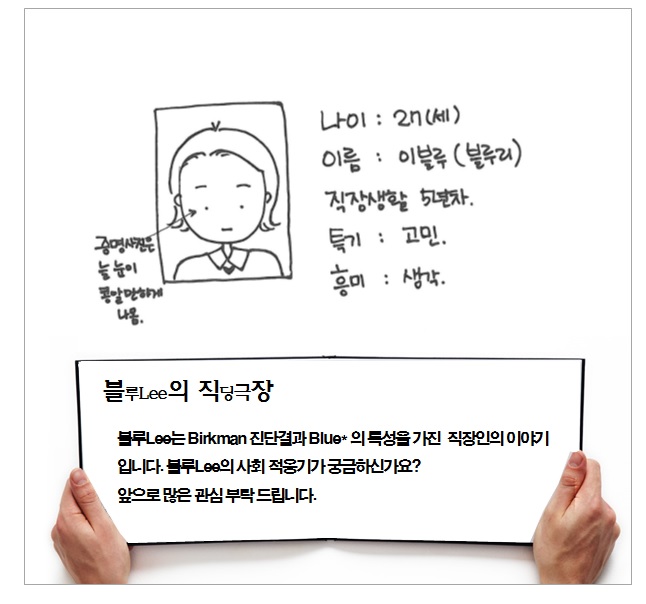 나이 : 27(세)
이름 : 이블루 (블루리)
직장생활 5년차.
특기 : 고민.
흥미 : 생각.
증명사진은
늘 눈이
콩알만하게
나옴.
블루Lee의 직딩극장
블루Lee는 Birkman 진단결과 Blue* 의 특성을 가진 직장인의 이야기
입니다. 블루Lee의 사회 적응기가 궁금하신가요?
앞으로 많은 관심 부탁 드립니다.